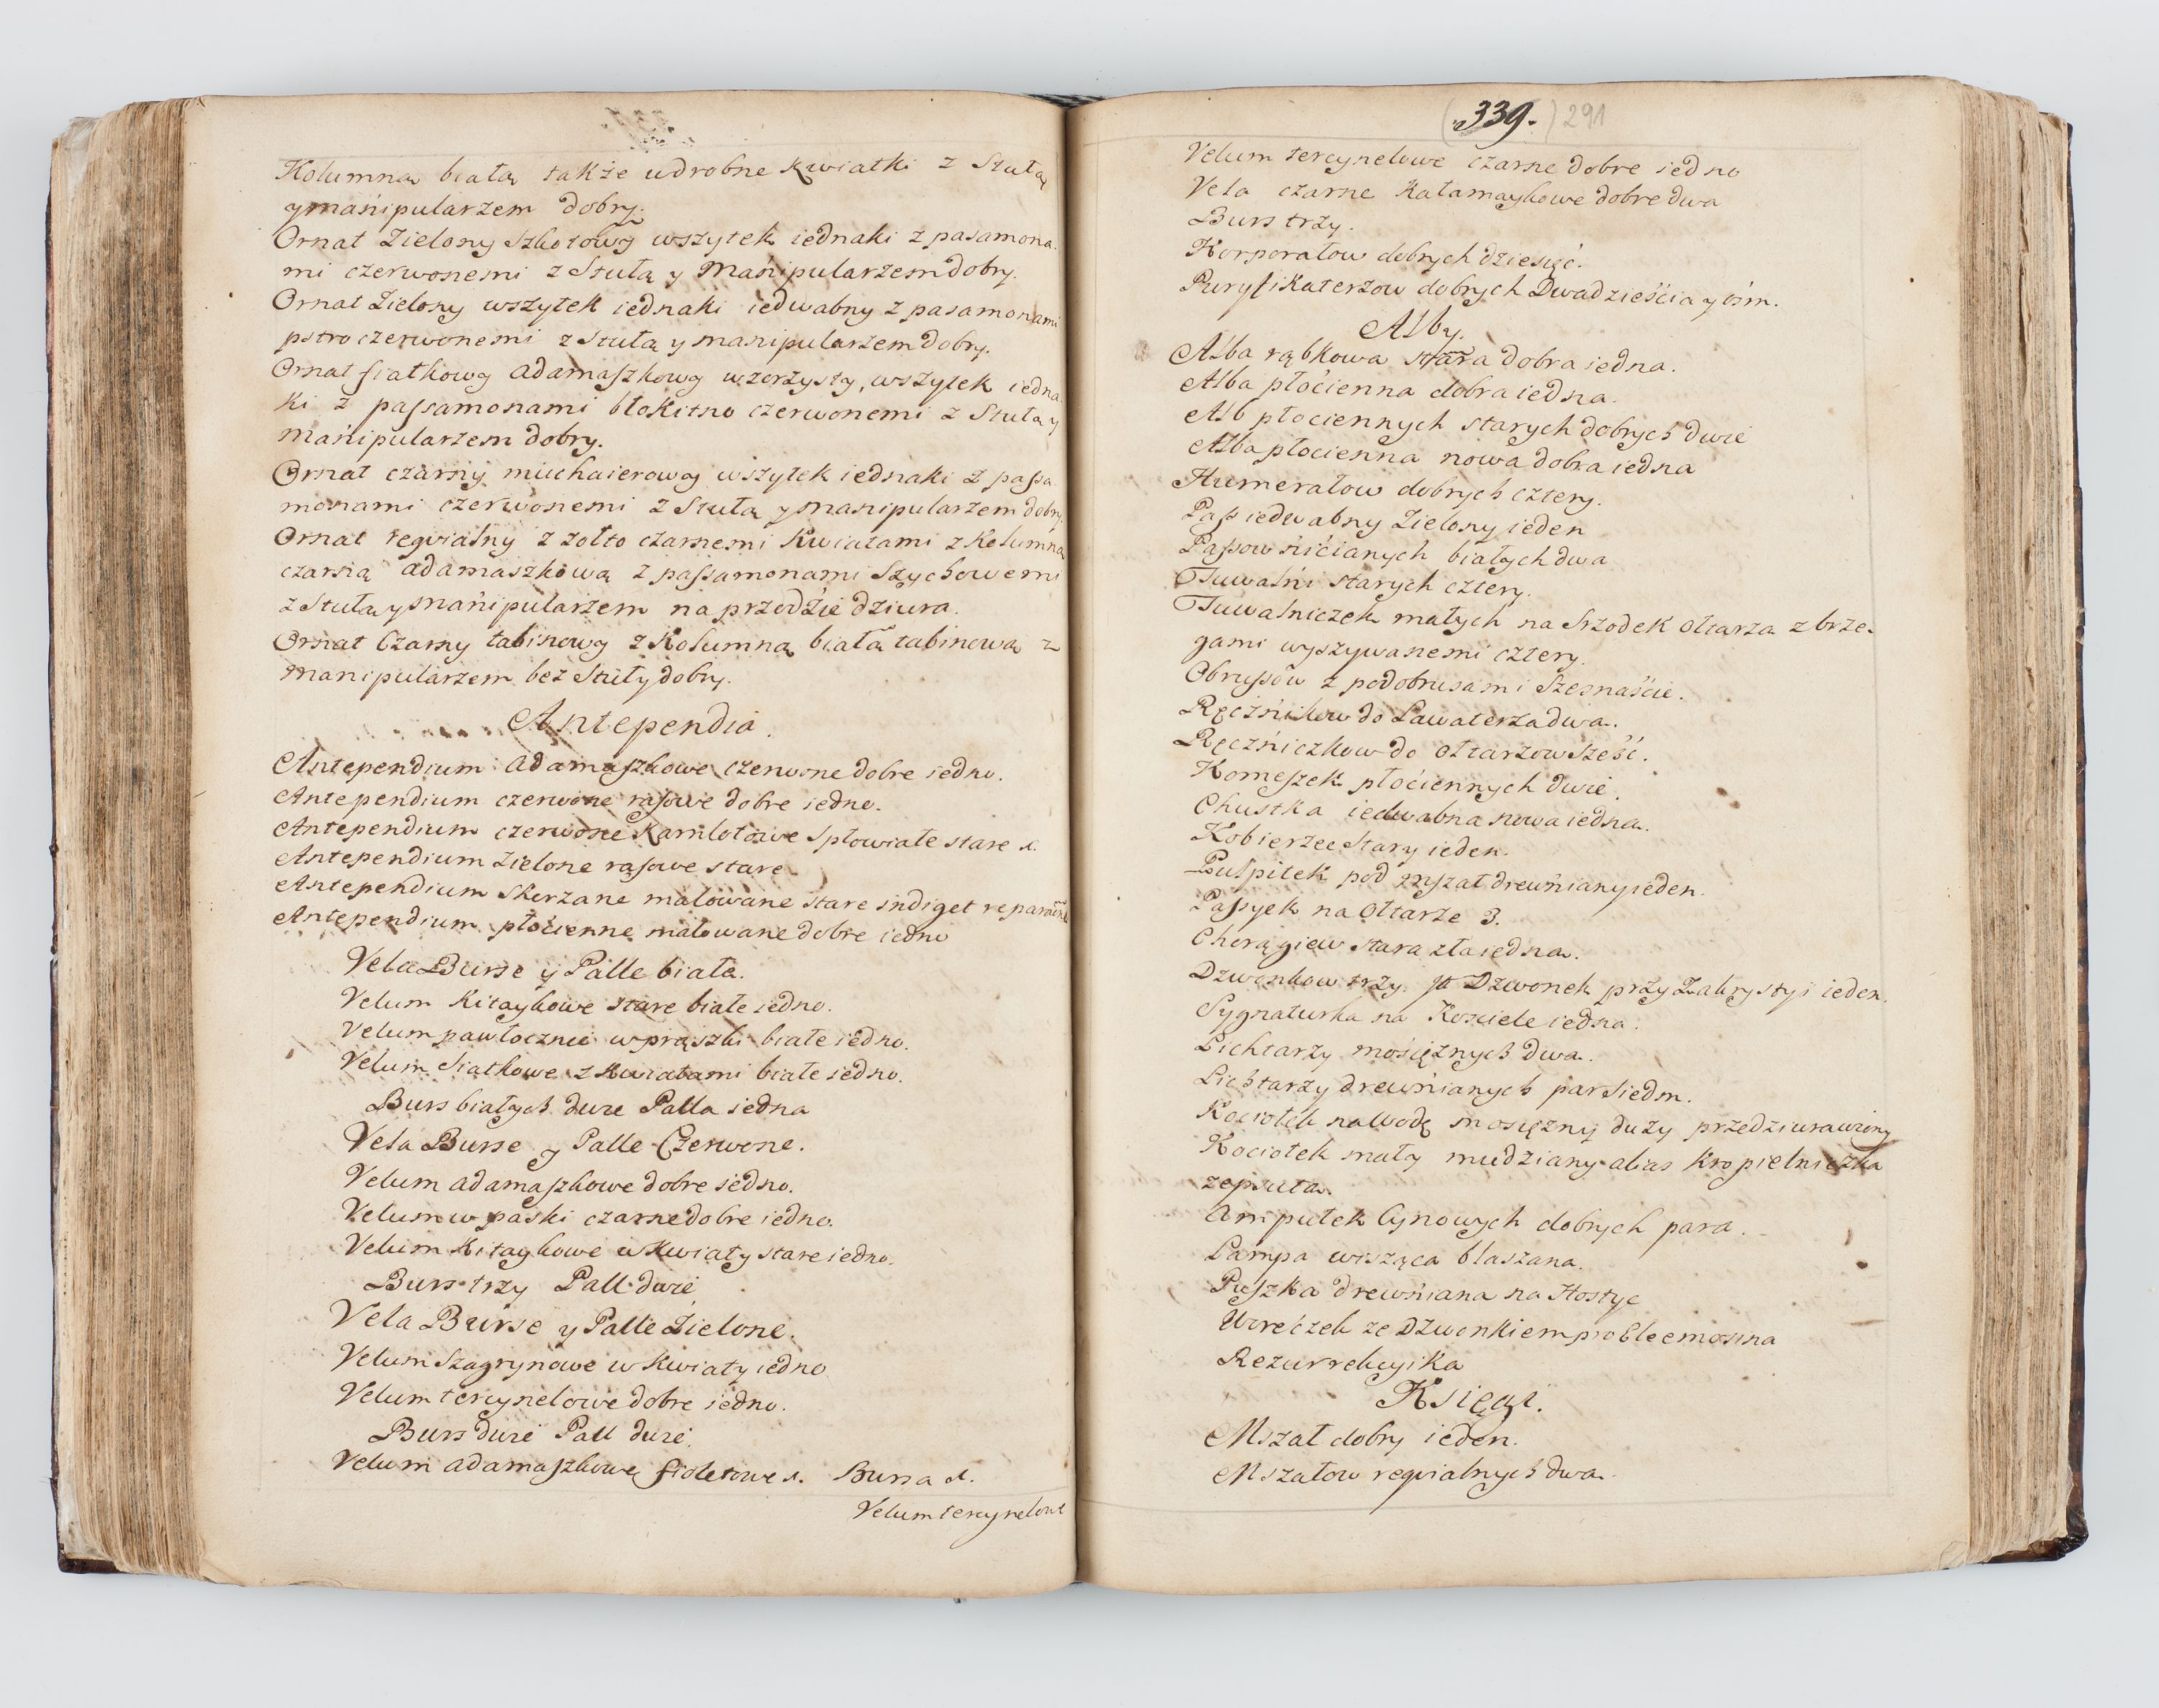 Kolumną białą także udrobne kwiatki z Stułą
y mańipularzem dobry.
Ornat Zielony szkotowy wszytek iednaki z pasamona-
mi czerwonemi z Stułą y Mańipularzem dobry.
Ornat Zielony wszytek iednaki iedwabny z pasamonami
pstro czerwonemi z Stułą y manipularzem dobry.
Ornat siatkowy adamaszkowy wzorzysty, wszytek iedna-
ki z passamonami błokitno czerwonemi z Stułą y
mańipularzem dobry.
Ornat czarny muchaierowy wszytek iednaki z passa
monami czerwonemi z Stułą y manipularzem dobry.
Ornat reqvialny z zołto czarnemi kwiatami z Kolumną
czarną adamaszkową z passamonami Szychowemi
z Stułą y mańipularzem na przodźie dziura.
Ornat Czarny tabinowy z Kolumną białą tabinową z
manipularzem bez Stuły dobry.
Antependia.
Antependium adamaszkowe czerwone dobre iedno.
Antependium czerwone rasowe dobre iedno.
Antependium czerwone kamlotowe spłowiałe stare 1.
Antependium Zielone rasowe stare
Antependium skorzane malowane stare indiget reparaone
Antependium płócienne malowane dobre iedno
Vela Burse y Palle białe.
Velum Kitaykowe stare białe iedno.
Velum pawłocznei w prąszki białe iedno.
Velum Siatkowe z kwiatami białe iedno.
Burs białych dwie Palla iedna
Vela Burse y Palle Czerwone.
Velum adamaszkowe dobre iedno.
Velum w paski czarne dobre iedno.
Velum Kitaykowe w kwiaty stare iedno.
Burs trzy Pall dwie
Vela Burse y Palle Zielone.
Velum Szagrynowe w kwiaty iedno
Velum tercynelowe dobre iedno.
Burs dwie Pall dwie.
Velum adamaszkowe fioletowe 1. Bursa 1.
Velum tercynelowe
(339.) 291
Velum tercynelowe czarne dobre iedno
Vela czarne kałamaykowe dobre dwa
Burs trzy.
Korporałow dobrych dziesięć.
Puryfikaterzow dobrych Dwadzieścia y ośm.
Alby.
Alba rąbkowa stara dobra iedna.
Alba płócienna dobra iedna.
Alb płociennych starych dobrych dwie
Alba płocienna nowa dobra iedna
Humerałow dobrych cztery.
Pass iedwabny Zielony ieden
Passow nićianych białych dwa
Tuwalni starych cztery.
Tuwalniczek małych na Srzodek ołtarza z brze-
gami wyszywanemi cztery.
Obrussow z podobrusami Szesnaście.
Ręczników do Lawaterza dwa.
Ręczniczkow do ołtarzow Sześć.
Komeszek płóciennych dwie.
Chustka iedwabna nowa iedna.
Kobierzec Stary ieden.
Pulpitek pod mszał drewniany ieden.
Passyek na Ołtarze 3.
Chorągiew stara zła iedna.
Dzwonkow trzy. Dzwonek przy Zakrystyi ieden.
Sygnaturka na Kosciele iedna.
Lichtarzy mosiężnych dwa.
Lichtarzy drewnianych par Siedm.
Kociołek na Wodę mosiężny duży przedziurawiony
Kociołek mały miedziany alias kropielniczka
zepsuta.
Ampułek Cynowych dobrych para.
Lampa wisząca blaszana.
Puszka drewniana na Hostye
Woreczek ze Dzwonkiem pro Eleemosina
Rezurrekcyika
Księgi.
Mszał dobry ieden.
Mszałow reqvialnych dwa.